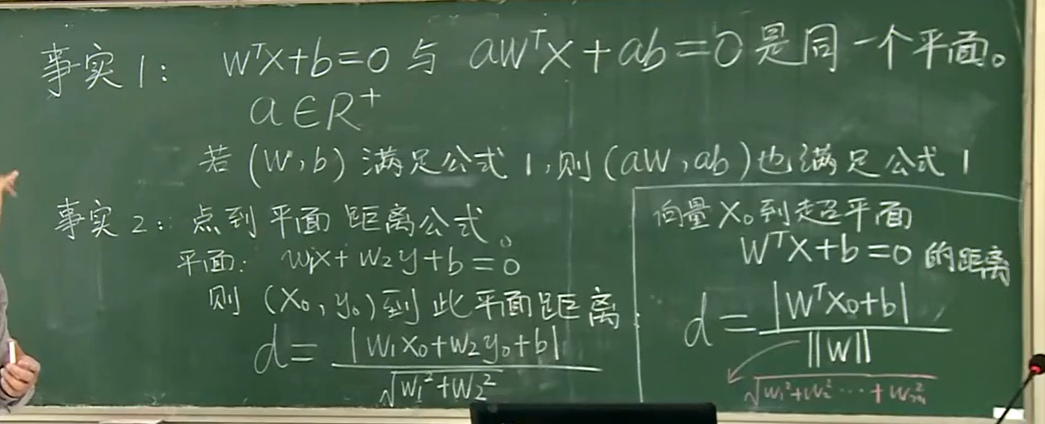 事实1： WᵀX+b=0 与 aWᵀX+ab=0 是同一个平面。
a∈R⁺
若（W,b）满足公式1,则（aW,ab）也满足公式1
事实2：点到平面距离公式。
平面：w₁x+w₂y+b=0
则（x₀,y₀）到此平面距离
d=|w₁x₀+w₂y₀+b|/√(w₁²+w₂²)
向量X₀到超平面
WᵀX+b=0的距离
d=|WᵀX₀+b|/||W||
√(w₁²+w₂²···+wₘ²)